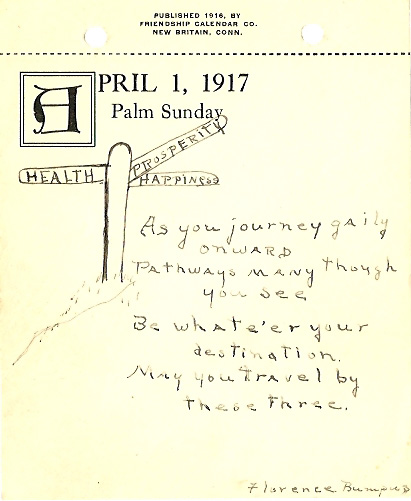 PUBLISHED 1916, BY
FRIENDSHIP CALENDAR CO.
NEW BRITAIN, CONN.
APRIL 1, 1917
Palm Sunday
PROSPERITY
HEALTH
HAPPINESS
As you journey gaily
onward
Pathways many though
you see
Be whate'er your
destination.
May you travel by
these three.
Florence Bumpus